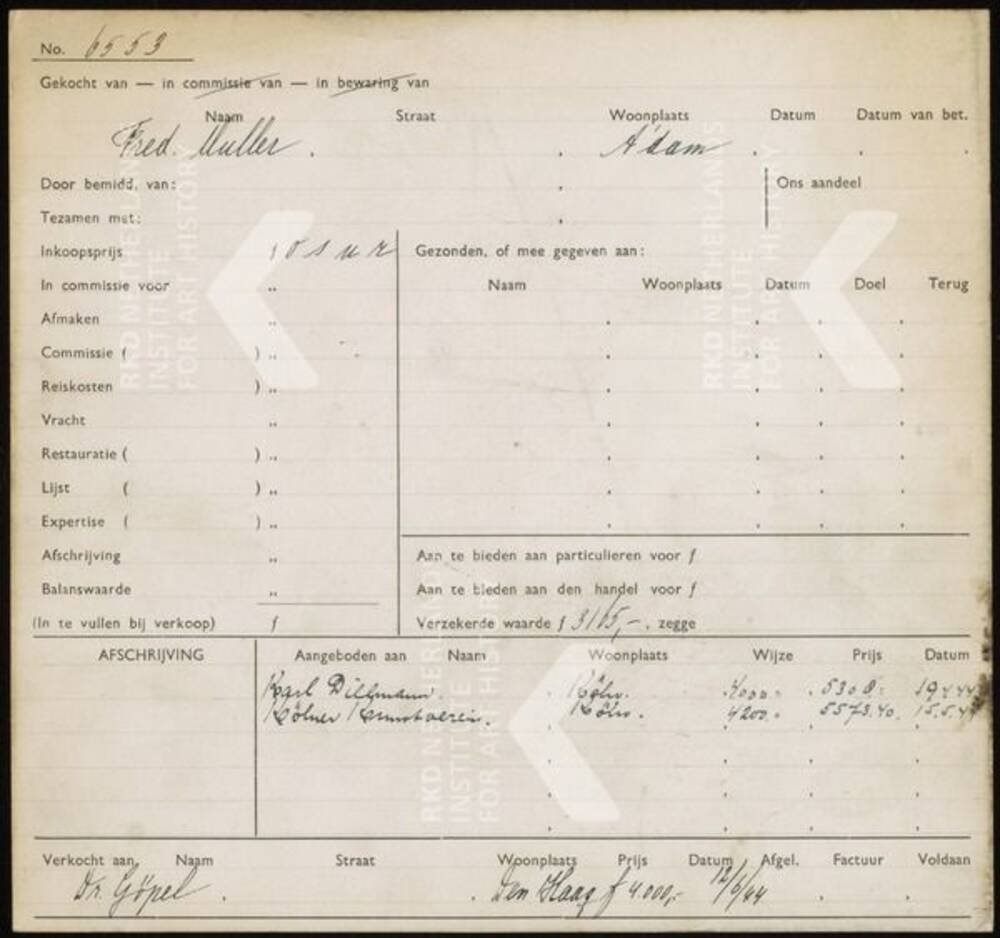 No. 6553
Gekocht van — in commissie van — in bewaring van
Naam Straat Woonplaats Datum Datum van bet.
Fred. Muller. A'dam
Door bemidd. van: Ons aandeel
Tezamen met:
Inkoopsprijs f o s u r Gezonden, of mee gegeven aan:
In commissie voor „ Naam Woonplaats Datum Doel Terug
Afmaken „
Commissie ( ) „
Reiskosten ) „
Vracht „
Restauratie ( ) „
Lijst ( ) „
Expertise ( ) „
Afschrijving „ Aan te bieden aan particulieren voor f
Balanswaarde „ Aan te bieden aan den handel voor f
(In te vullen bij verkoop) f Verzekerde waarde f 3105,-. zegge
AFSCHRIJVING Aangeboden aan Naam Woonplaats Wijze Prijs Datum
Karl Dillmann. Köln. 4000.- 5300.- 19.4.44
Kölner Kunstverein. Köln. 4200.- 5573.40. 15.5.44
Verkocht aan, Naam Straat Woonplaats Prijs Datum Afgel. Factuur Voldaan
Dr. Göpel Den Haag f 4.000,- 12/6/44
RKD NETHERLANDS
INSTITUTE
FOR ART HISTORY
RKD NETHERLANDS
INSTITUTE
FOR ART HISTORY
RKD NETHERLANDS
INSTITUTE
FOR ART HISTORY